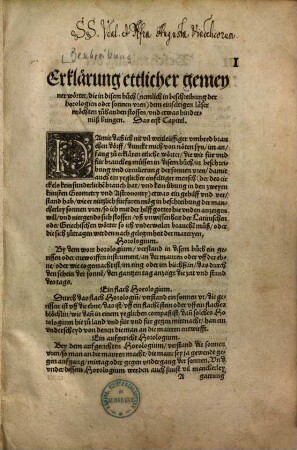 SS. Udal. et Afra Augusta Vindelicorum.
1
Erklärung ettlicher gemey
ner wörter, die in disem büch (nemlich in beschreibung der
horologien oder sonnen vren) dem einfeltigen läser
möchten zůhanden stossen, vnd etwas hinder-
niß bringen. Das erst Capitel.
DAmit daß ich nit vil weitleüffiger vmbred brau
chen dörff, dunckt mich von nöten syn, im an/
fang zů erklären etliche wörter, die wir für vnd
für brauchen müssen in disem büch in beschrei-
bung vnd circulierung der sonnen vren, damit
auch ein yeglicher einfeltiger mensch, der das cir
ckele kein sunderlich bruch hat, vnd kein übung in den zweyen
künsten Geometry vnd Astronomy, etwas ein gehilff vnd ver-
stand hab, wie er nützlich fürfaren mög in beschreibung der man
cherley sonnen vren, so ich mit der hilff gottes hie vnden anzeigen
will, vnd niergends sich stossen, vß vnwissenheit der Latinischen
oder Griechischen wörter so ich vnderweilen brauch muß, oder
die sich zůtragen werden nach gelegenheit der materyen.
Horologium.
By dem wort horologium, verstand in disem büch ein ge-
rissen oder entworffen instrument, an die mauren oder vff der eb-
ne, oder wie es gemacht ist, im ring oder im büchßlin, das durch
den schein der sonnen, den gantzen tag anzeigt die zyt vnd stund
des tags.
Ein flach Horologium.
Durch das flach Horologium verstand ein sonnen vr, die geris-
sen ist vff die ebne, das ist, vff ein flachen stein oder vff ein flachen
blöchlin, wie dañ in einem yeglichen compassist, dañ solches Ho
rologium hie zů land vnd für vnd für gegen mittnacht, hat ein
vnderscheyd von denen die man an die mauren entwürfft.
Ein auffgericht Horologium.
Bey dem auffgerichten Horologium, verstand die sonnen
vren, so man an die mauren macht, die maur sey ia gewendt gegen
auffgang, mittag oder gegen vndergang der sonnen. Vnd
vnder disem Horologium werden auch sunst vil mancherley
A
gattung